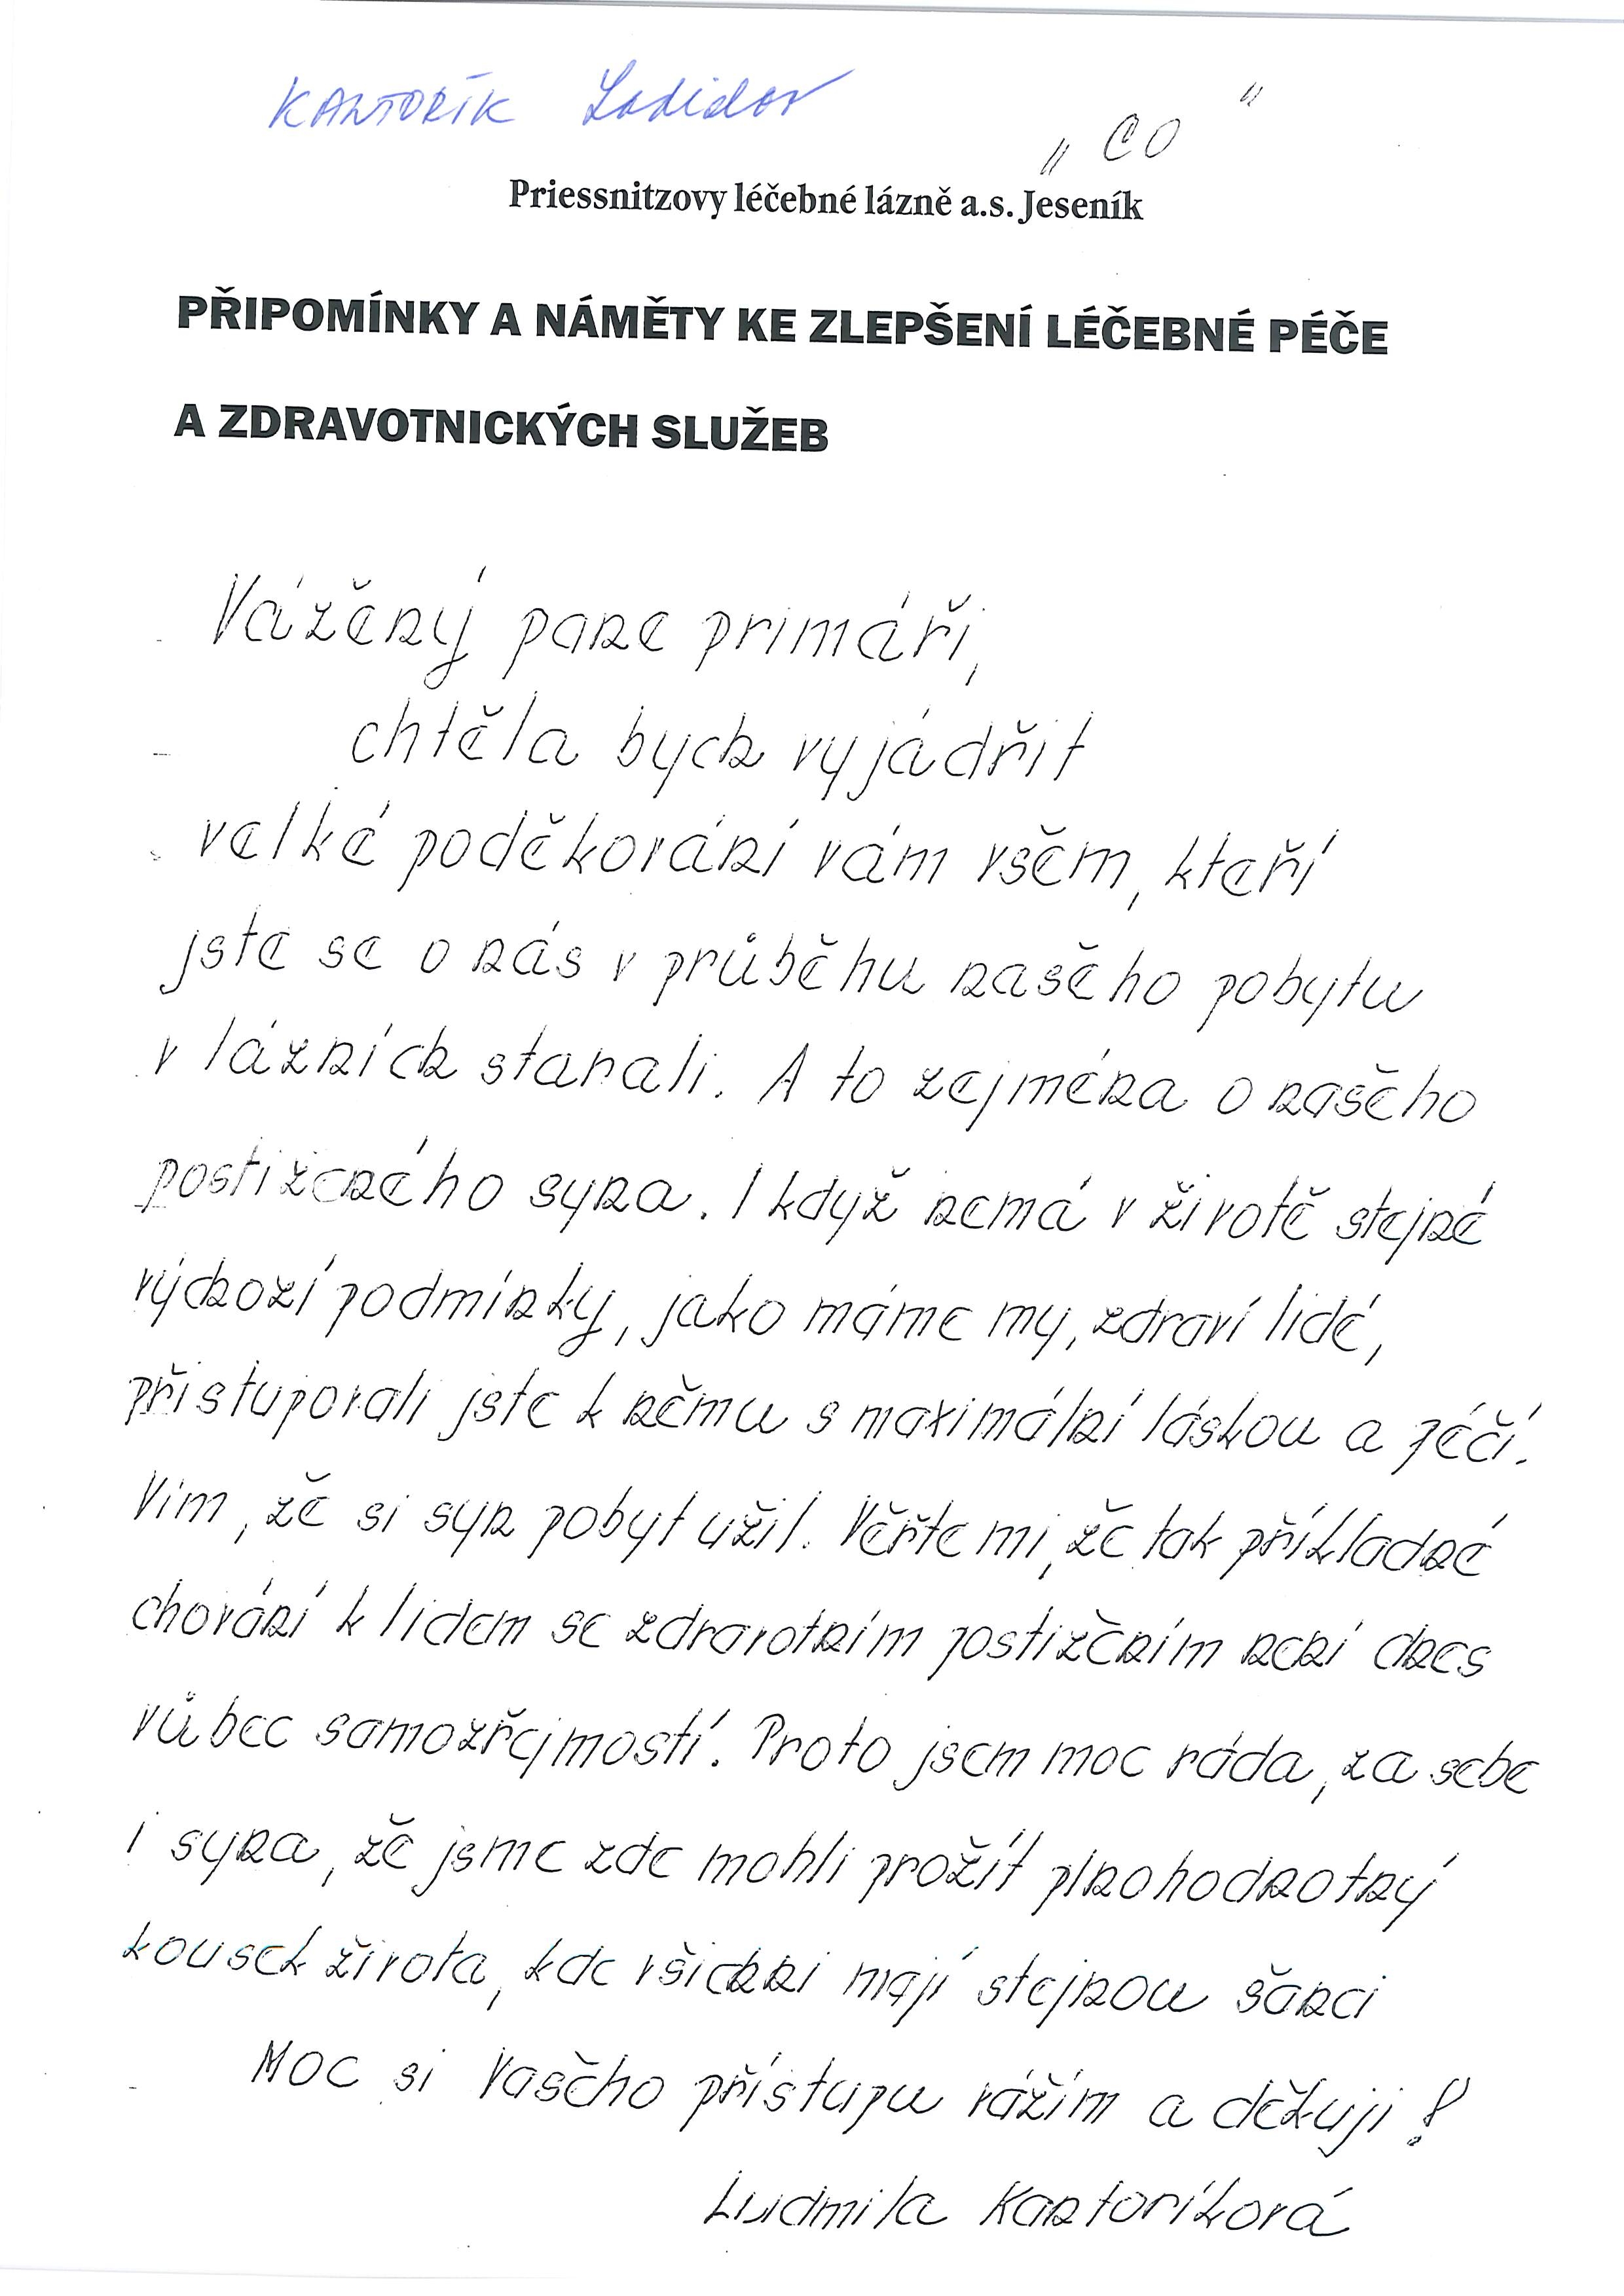 KANTORÍK
„CO"
Priessnitzovy léčebné lázně a.s. Jeseník
PŘIPOMÍNKY A NÁMĚTY KE ZLEPŠENÍ LÉČEBNÉ PÉČE
A ZDRAVOTNICKÝCH SLUŽEB
Vážený pane primáři,
chtěla bych vyjádřit
velké poděkování vám všem, kteří
jste se o nás v průběhu našeho pobytu
v lázních starali. A to zejména o našeho
postiženého syna. I když nemá v životě stejné
výchozí podmínky, jako máme my, zdraví lidé,
přistupovali jste k němu s maximální láskou a péčí.
Vím, že si syn pobyt užil. Věřte mi, že tak příkladné
chování k lidem se zdravotním postižením není dnes
vůbec samozřejmostí. Proto jsem moc ráda, za sebe
i syna, že jsme zde mohli prožít plnohodnotný
kousek života, kde všichni mají stejnou šanci
Moc si Vašeho přístupu vážím a děkuji!
Ludmila Kantoríková